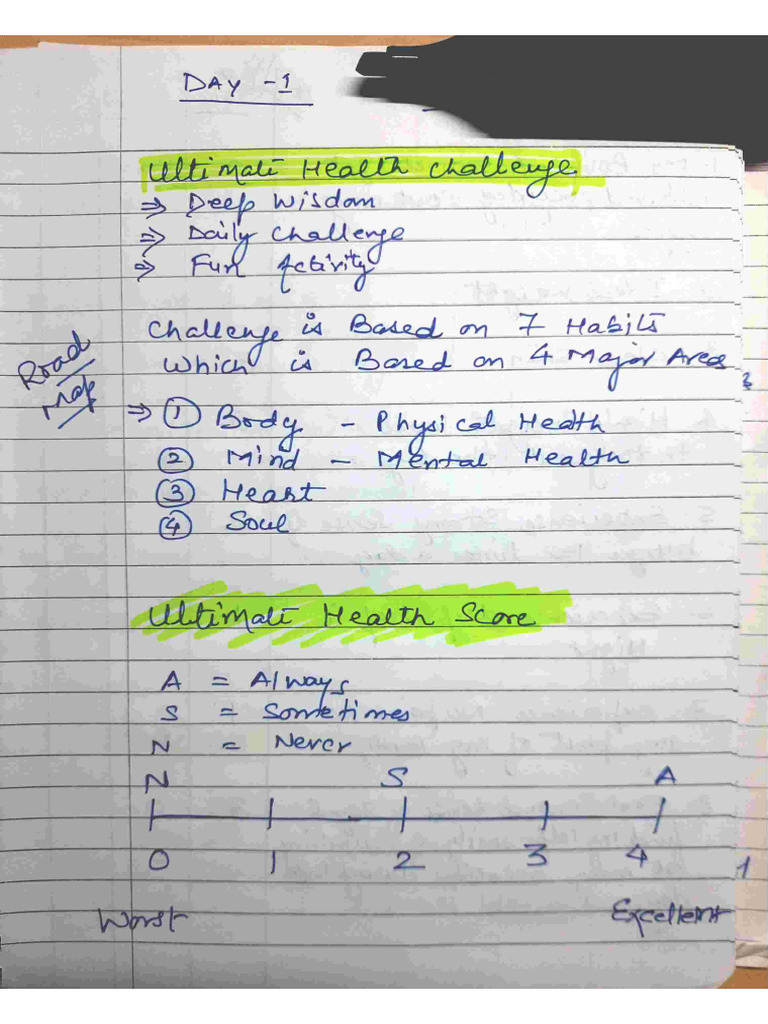 DAY - 1
Ultimate Health Challenge
⇒ Deep Wisdom
⇒ Daily Challenge
⇒ Fun Activity
Challenge is Based on 7 Habits
Which is Based on 4 Major Areas
Road Map
⇒ ① Body - Physical Health
② Mind - Mental Health
③ Heart
④ Soul
Ultimate Health Score
A = Always
S = Sometimes
N = Never
N S A
0 1 2 3 4
Worst Excellent